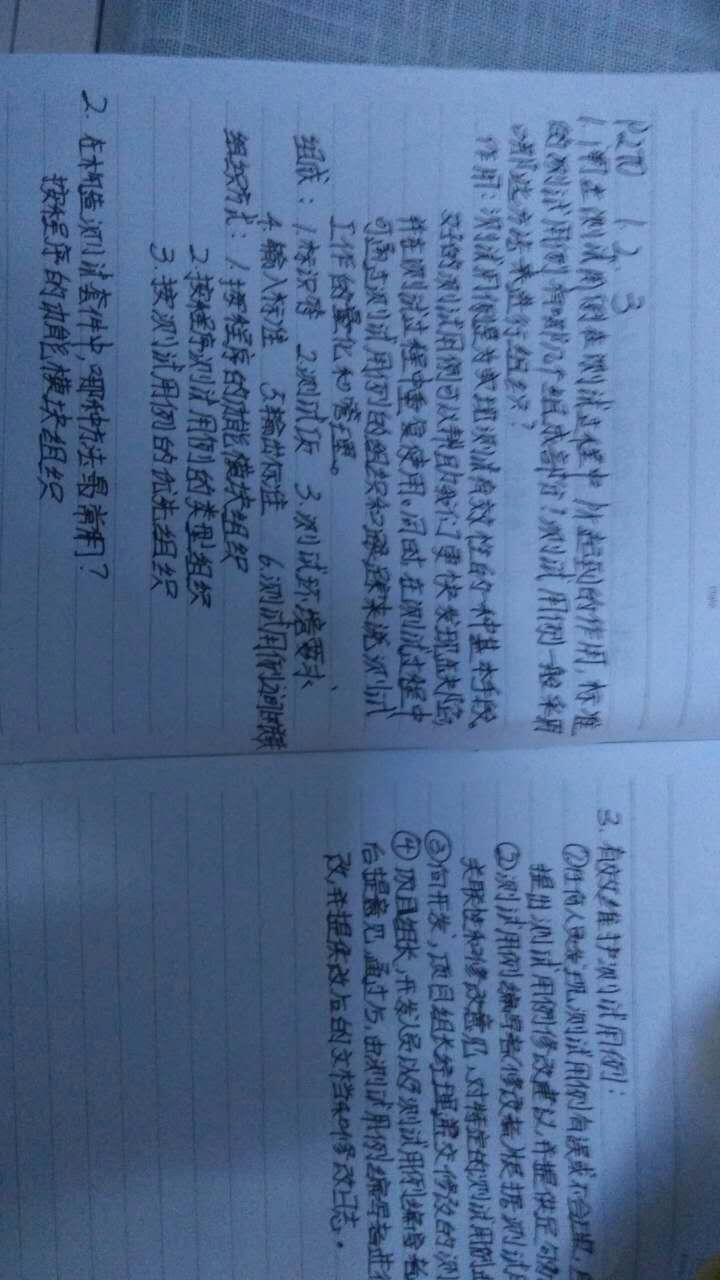 P270 1. 2. 3
1. 阐述测试用例在测试过程中所起到的作用，标准
的测试用例有哪几个组成部分？测试用例一般采用
哪些方法来进行组织？
作用：测试用例是为实现测试有效性的一种基本手段，
好的测试用例可以帮助我们更快发现缺陷
并在测试过程中重复使用。同时在测试过程中
可通过测试用例的组织和跟踪来完成测试
工作的量化和管理。
组成：1.标识符 2.测试项 3.测试环境要求
4.输入标准 5.输出标准 6.测试用例之间的关联
组织方式：1.按程序的功能模块组织
2.按程序测试用例的类型组织
3.按测试用例的优先组织
2. 在构造测试套件中，哪种方法最常用？
按程序的功能模块组织
3. 有效维护测试用例：
①任何人员发现测试用例有误或不合理，
提出测试用例修改建议，并提供足够
②测试用例编写者(修改者)根据测试
关联性和修改意见，对特定的测试用例
③向开发、项目组长经理提交修改的测
④项目组长，开发人员以及测试用例编写者
后提意见，通过后，由测试用例编写者进行
改，并提供改后的文档和修改日志。